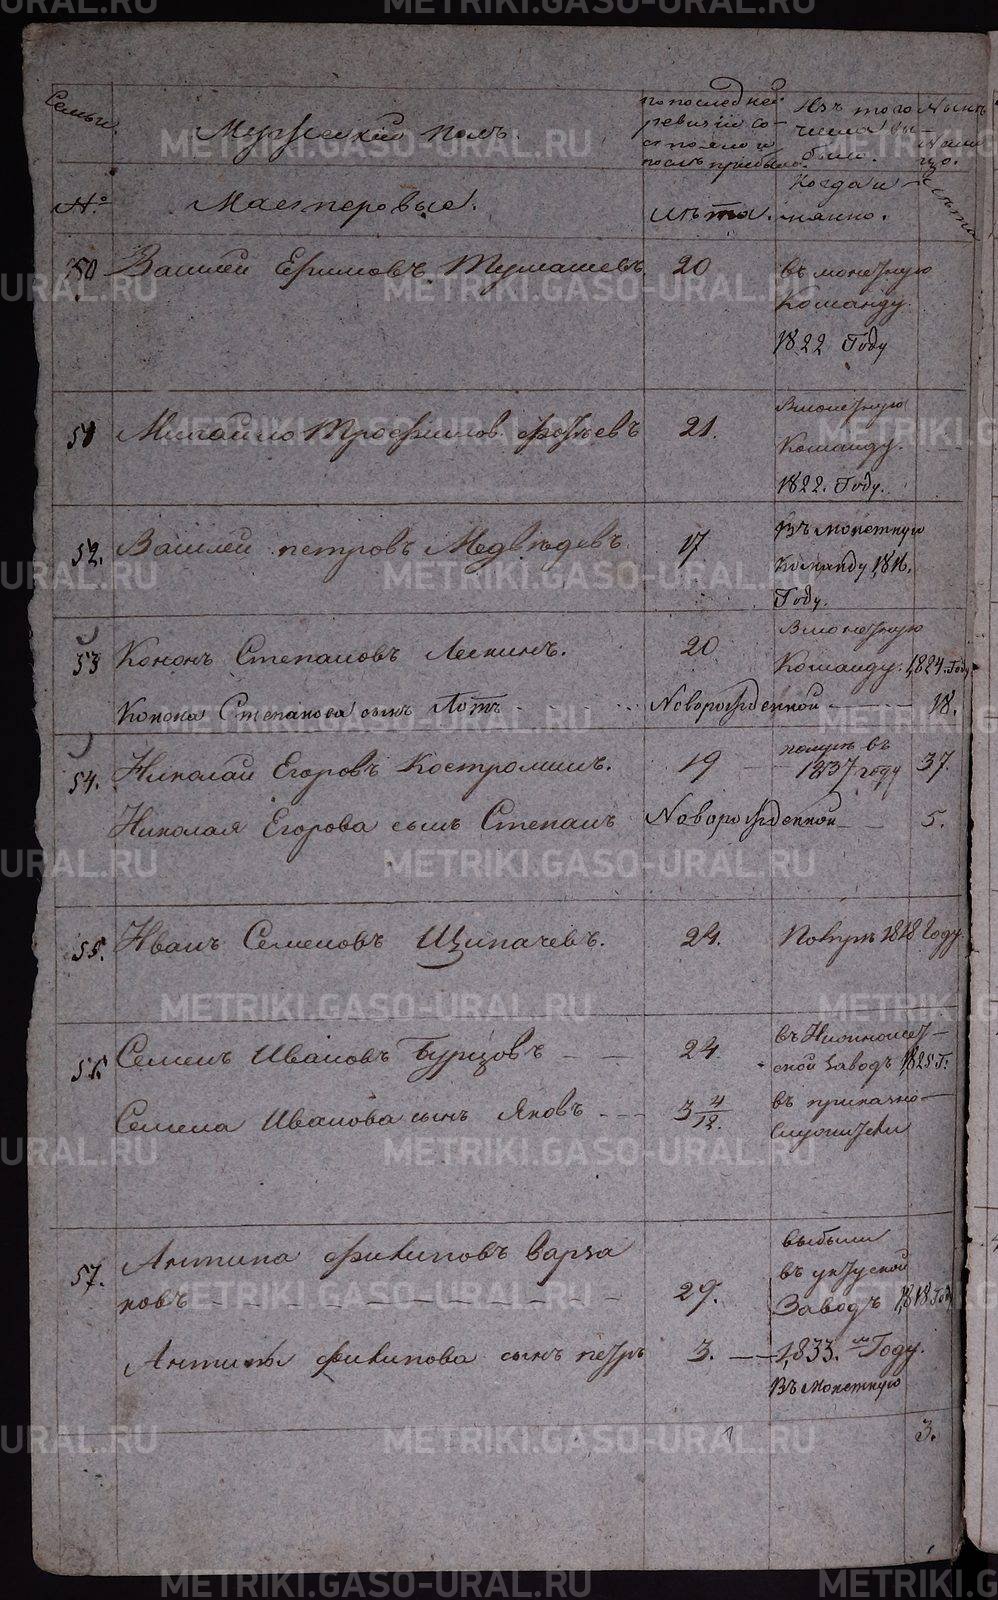 Семьи. Мужеский полъ. по последней ревизіи со- стояло и послѣ прибыло. Изъ того числа вы- было. Нынѣ Нали цо.
№ Мастеровые. лѣта. Когда и имянно. Лѣта
50 Василей Ефимовъ Тумашевъ 20 въ монетную
Команду
1822 Году
51 Михайло Трофимов 21. Вмонетную
Команду.
1822. Году.
52. Василей петровъ Медвѣдевъ 17 Въ монетную
Команду 1816.
Году.
53 Кононъ Степановъ Лепинъ. 20 Вмонетную
Команду. 1824. Году
Конона Степанова сынъ Лотъ Новорожденной 18.
54. Николай Егоровъ Костроминъ. 19 въ 1837 году 37.
Николая Егорова сынъ Степанъ Новорожденной 5.
55. Иванъ Семеновъ Щипачевъ. 24. Помре 1818 Году
56 Семенъ Ивановъ Бурцовъ 24. въ Нижноисет-
ской Заводъ 1825 Г.
Семена Иванова сынъ Яковъ 3 4/12. въ приказно-
служители
57. Антипа Филиповъ Варза
ковъ 29. выбыли
въ уктуской
Заводъ 1818 Году
Антипы Филипова сынъ петръ 3. 1833. Году.
Въ Монетную
3.
METRIKI.GASO-URAL.RU